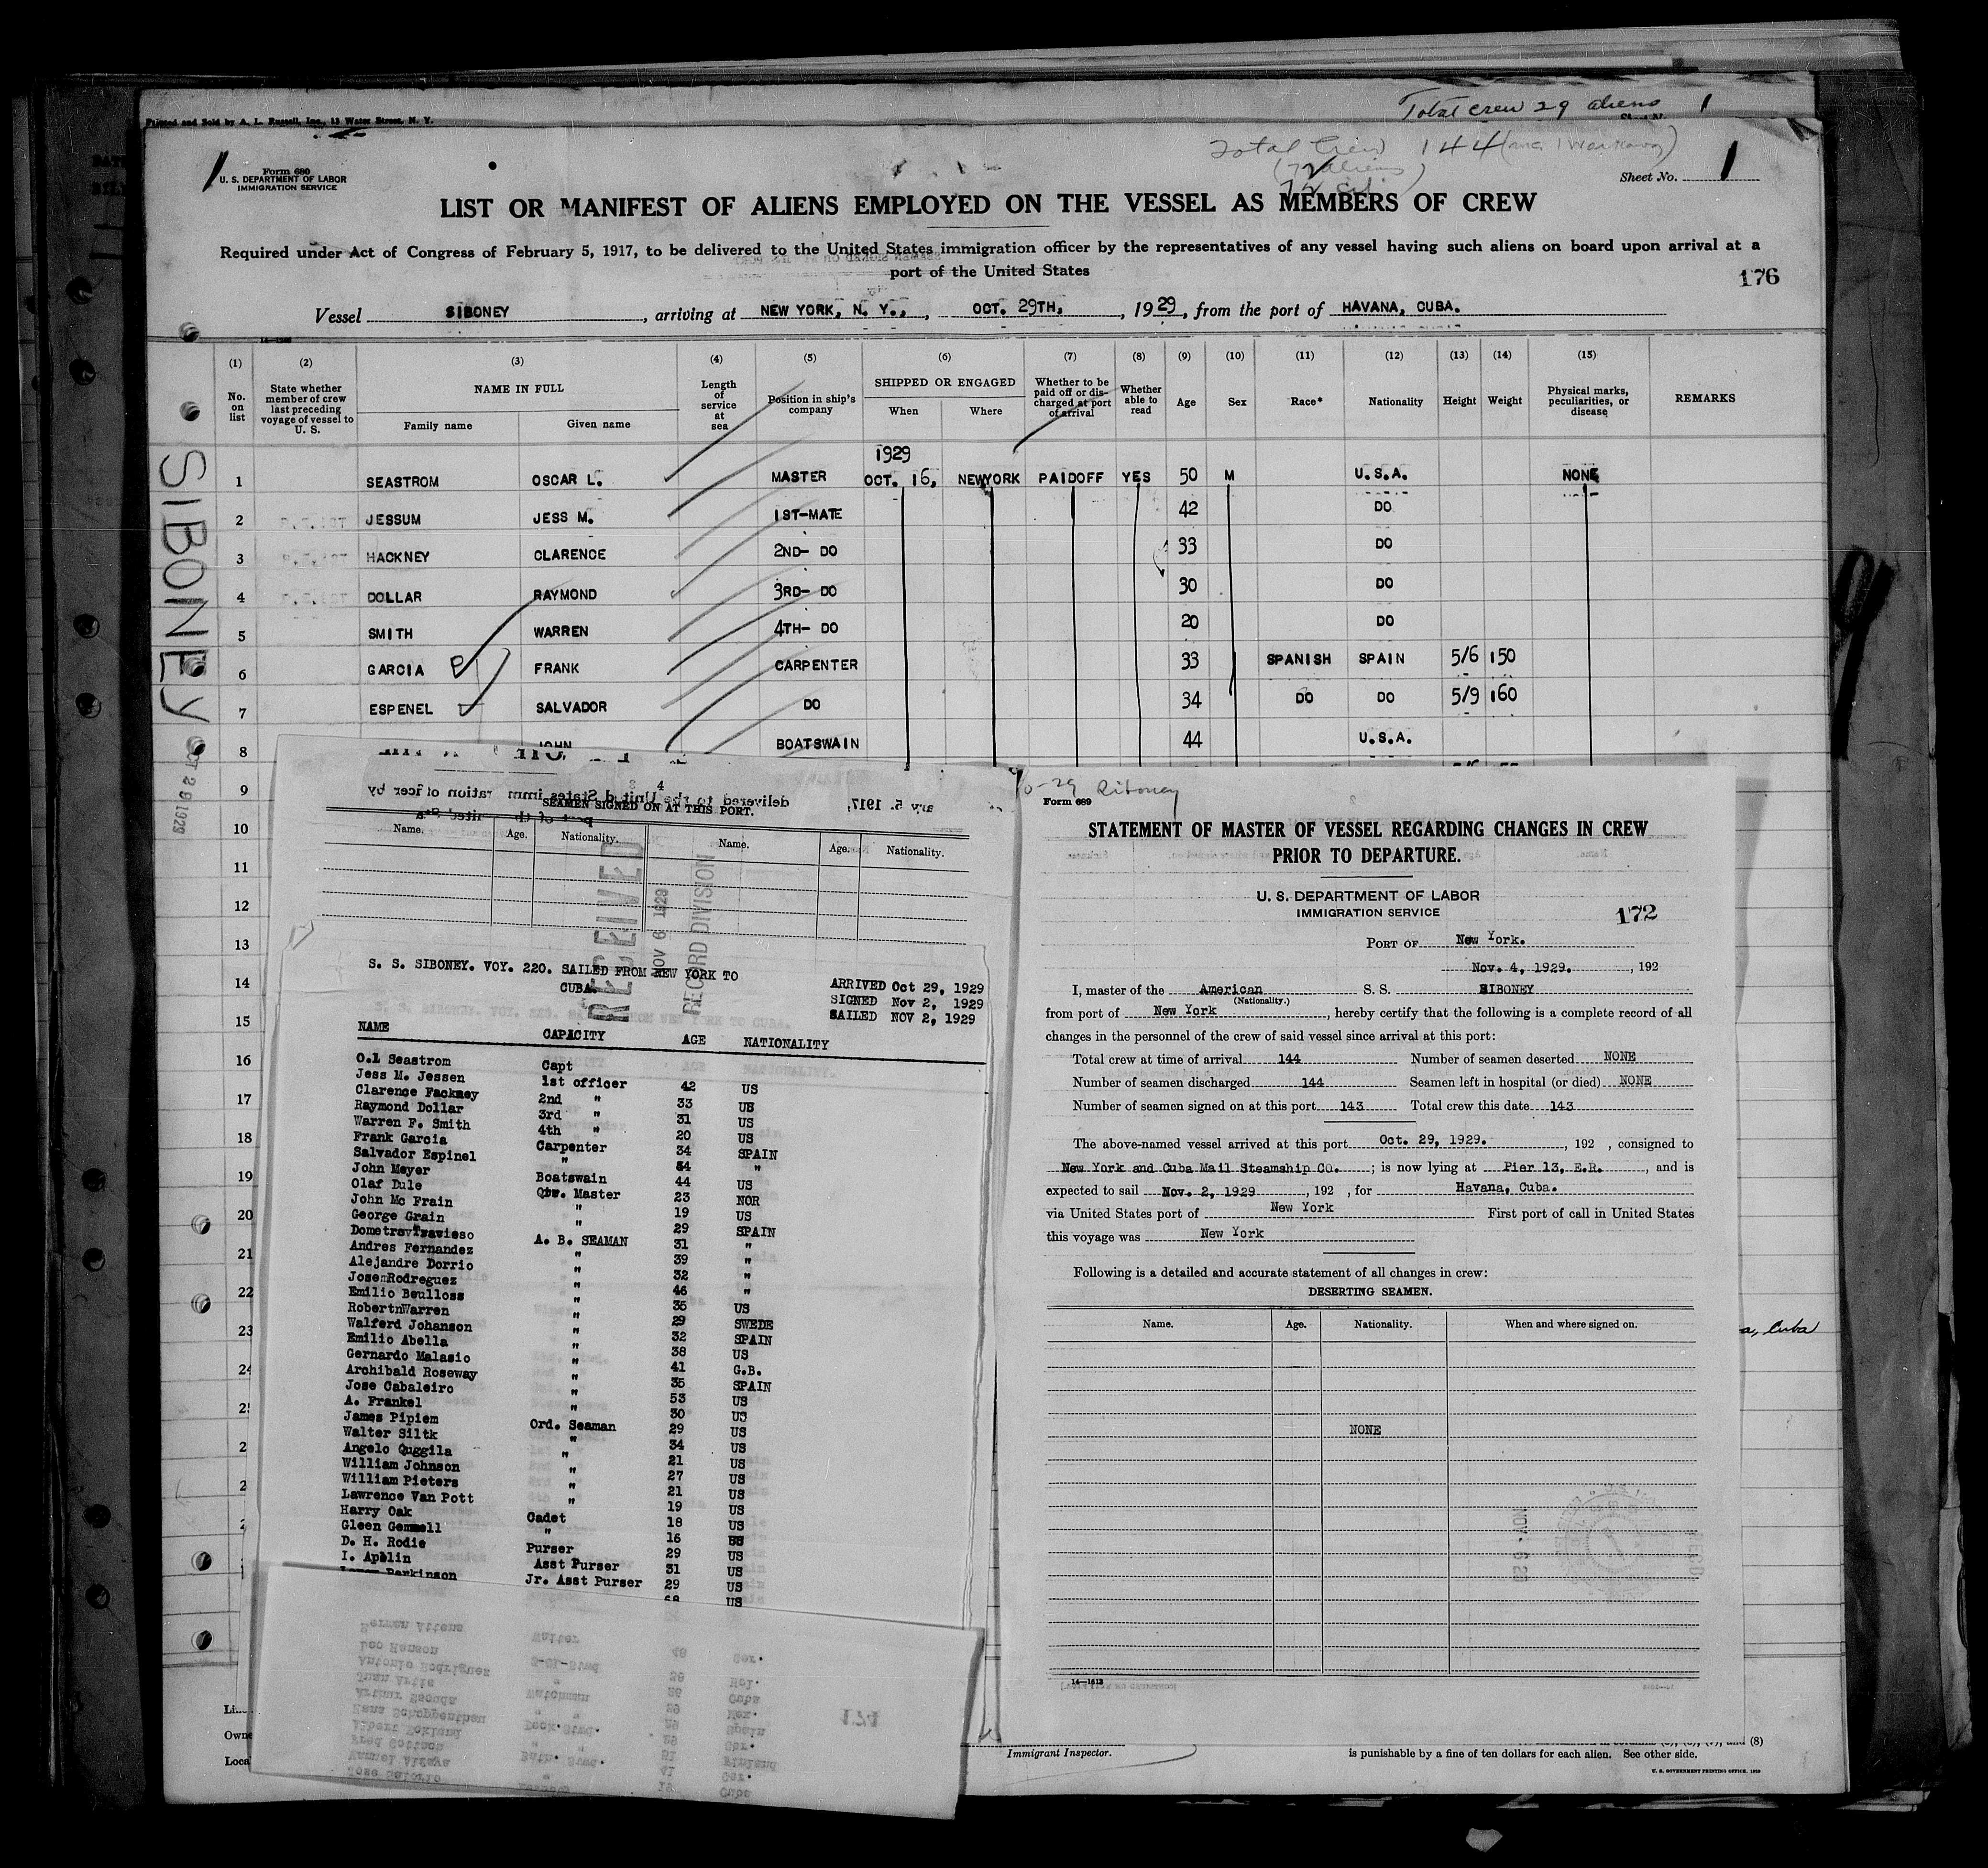 Total crew 29 aliens 1
Printed and Sold by A. L. Russell, Inc., 13 Water Street, N. Y.
Total Crew 144 (and 1 Workaway)
(72 aliens)
72 cit
1
Form 680
U. S. DEPARTMENT OF LABOR
IMMIGRATION SERVICE
Sheet No. 1
LIST OR MANIFEST OF ALIENS EMPLOYED ON THE VESSEL AS MEMBERS OF CREW
Required under Act of Congress of February 5, 1917, to be delivered to the United States immigration officer by the representatives of any vessel having such aliens on board upon arrival at a
port of the United States
176
Vessel SIBONEY, arriving at NEW YORK, N. Y., OCT. 29TH, 1929, from the port of HAVANA, CUBA.
(1) (2) (3) (4) (5) (6) (7) (8) (9) (10) (11) (12) (13) (14) (15)
No. on list State whether member of crew last preceding voyage of vessel to U. S. NAME IN FULL Family name Given name Length of service at sea Position in ship's company SHIPPED OR ENGAGED When Where Whether to be paid off or discharged at port of arrival Whether able to read Age Sex Race* Nationality Height Weight Physical marks, peculiarities, or disease REMARKS
1929
1 SEASTROM OSCAR L. MASTER OCT. 16, NEWYORK PAIDOFF YES 50 M U.S.A. NONE
2 JESSUM JESS M. 1ST-MATE 42 DO
3 HACKNEY CLARENCE 2ND- DO 33 DO
4 DOLLAR RAYMOND 3RD- DO 30 DO
5 SMITH WARREN 4TH- DO 20 DO
6 GARCIA FRANK CARPENTER 33 SPANISH SPAIN 5/6 150
7 ESPENEL SALVADOR DO 34 DO DO 5/9 160
8 JOHN BOATSWAIN 44 U.S.A.
9
10
11
12
13
14
15
16
17
18
19
20
21
22
23
24
SIBONEY
OCT 29 1929
SEAMEN SIGNED ON AT THIS PORT.
Name. Age. Nationality. Name. Age. Nationality.
RECEIVED
NOV 6 1929
RECORD DIVISION
S. S. SIBONEY. VOY. 220. SAILED FROM NEW YORK TO
CUBA.
ARRIVED Oct 29, 1929
SIGNED Nov 2, 1929
SAILED NOV 2, 1929
NAME CAPACITY AGE NATIONALITY
O.l Seastrom Capt
Jess M. Jessen 1st officer 42 US
Clarence Fackney 2nd " 33 US
Raymond Dollar 3rd " 31 US
Warren F. Smith 4th " 20 US
Frank Garcia Carpenter 34 SPAIN
Salvador Espinel " 54 "
John Meyer Boatswain 44 US
Olaf Dule Qtr. Master 23 NOR
John Mc Frain " 19 US
George Grain " 29 SPAIN
Dometrov Travieso A. B. SEAMAN 31 "
Andres Fernandez " 39 "
Alejandre Dorrio " 32 "
Jose Rodreguez " 46 "
Emilio Beulloss " 35 US
Robert Warren " 29 SWEDE
Walferd Johanson " 32 SPAIN
Emilio Abella " 38 US
Gernardo Malasio " 41 G.B.
Archibald Roseway " 35 SPAIN
Jose Cabaleiro " 53 US
A. Frankel " 30 US
James Pipiem Ord. Seaman 29 US
Walter Siltk " 34 US
Angelo Quggila " 21 US
William Johnson " 27 US
William Pieters " 21 US
Lawrence Van Pott " 19 US
Harry Oak Cadet 18 US
Gleen Gemmell " 16 US
D. H. Rodie Purser 29 US
I. Applin Asst Purser 31 US
Parkinson Jr. Asst Purser 29 US
68 US
171
10-29 Siboney
Form 689
STATEMENT OF MASTER OF VESSEL REGARDING CHANGES IN CREW
PRIOR TO DEPARTURE.
U. S. DEPARTMENT OF LABOR
IMMIGRATION SERVICE
172
PORT OF New York.
Nov. 4, 1929., 192
I, master of the American S. S. SIBONEY
(Nationality.)
from port of New York, hereby certify that the following is a complete record of all
changes in the personnel of the crew of said vessel since arrival at this port:
Total crew at time of arrival 144 Number of seamen deserted NONE
Number of seamen discharged 144 Seamen left in hospital (or died) NONE
Number of seamen signed on at this port 143 Total crew this date 143
The above-named vessel arrived at this port Oct. 29, 1929., 192 , consigned to
New York and Cuba Mail Steamship CO. ; is now lying at Pier 13, E.R. , and is
expected to sail Nov. 2, 1929 , 192 , for Havana, Cuba.
via United States port of New York First port of call in United States
this voyage was New York
Following is a detailed and accurate statement of all changes in crew:
DESERTING SEAMEN.
Name. Age. Nationality. When and where signed on.
NONE
NOV 6 29
14—1613
a, Cuba
Immigrant Inspector.
is punishable by a fine of ten dollars for each alien. See other side.
U. S. GOVERNMENT PRINTING OFFICE. 1929